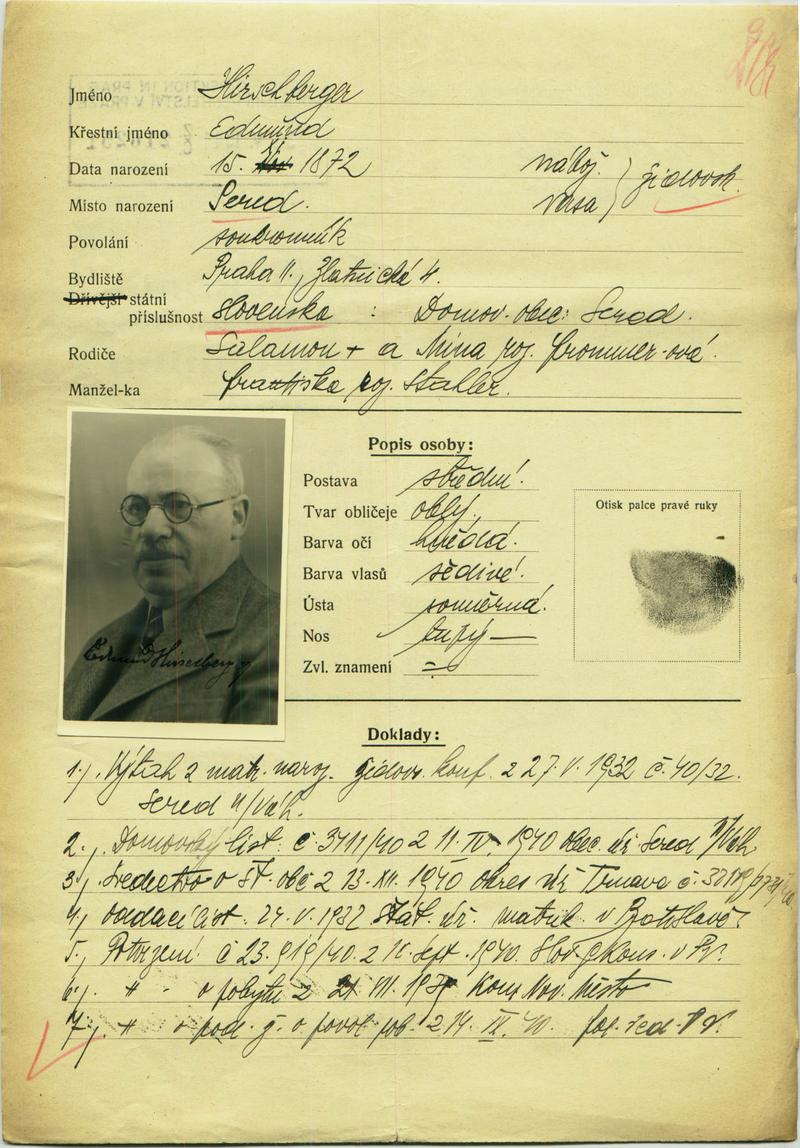 Jméno Hirschberger
Křestní jméno Edmund
Data narození 15. 1872 nábož. židovsk.
Místo narození Sered. rasa
Povolání soukromník
Bydliště Praha II., Zlatnická 4.
Dřívější státní
příslušnost Slovenská : Domov. obec: Sered.
Rodiče Salamon + a Mina roz. Frommer-ová.
Manžel-ka Františka roz. Stahler.
Popis osoby:
Postava střední.
Tvar obličeje oblý.
Otisk palce pravé ruky
Barva očí hnědá.
Barva vlasů šedivé.
Ústa souměrná.
Nos tupý —
Zvl. znamení =
Edmund Hirschberger
Doklady:
1.) Výtah z matr. naroz. židovs. konf. z 27.V.1932 č. 40/32.
Sered n/Váh.
2.) Domovský list. č 3711/40 z 11. IV. 1940 obec. úř. Sered n/Váh
3.) o st. obč z 13. XII. 1940 okres úř Trnava č.
4.) oddací list. 24. V. 1932 Stát. úř. matrik v Bratislavě.
5.) Potvrzení č 23.919/40. z sept. 1940. Slov. g Kons. v Pr.
6.) " - o pobytu z VII. Nov. Město
7.) " o pod. ž. o povol. pob. z 14. 40. pol. řed. Pr.